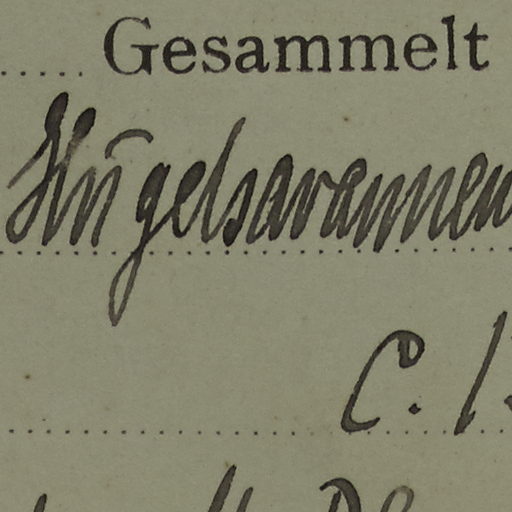 Gesammelt
Hügelsavannen
C.